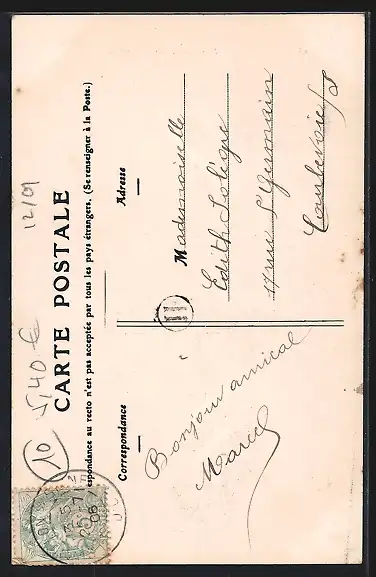 12/09
5,40 €
10
CARTE POSTALE
espondance au recto n'est pas acceptée par tous les pays étrangers. (Se renseigner à la Poste.)
Correspondance
Adresse
Bonjour amical
Marcel
Mademoiselle
Edith
17 rue St Germain
Courbevoie